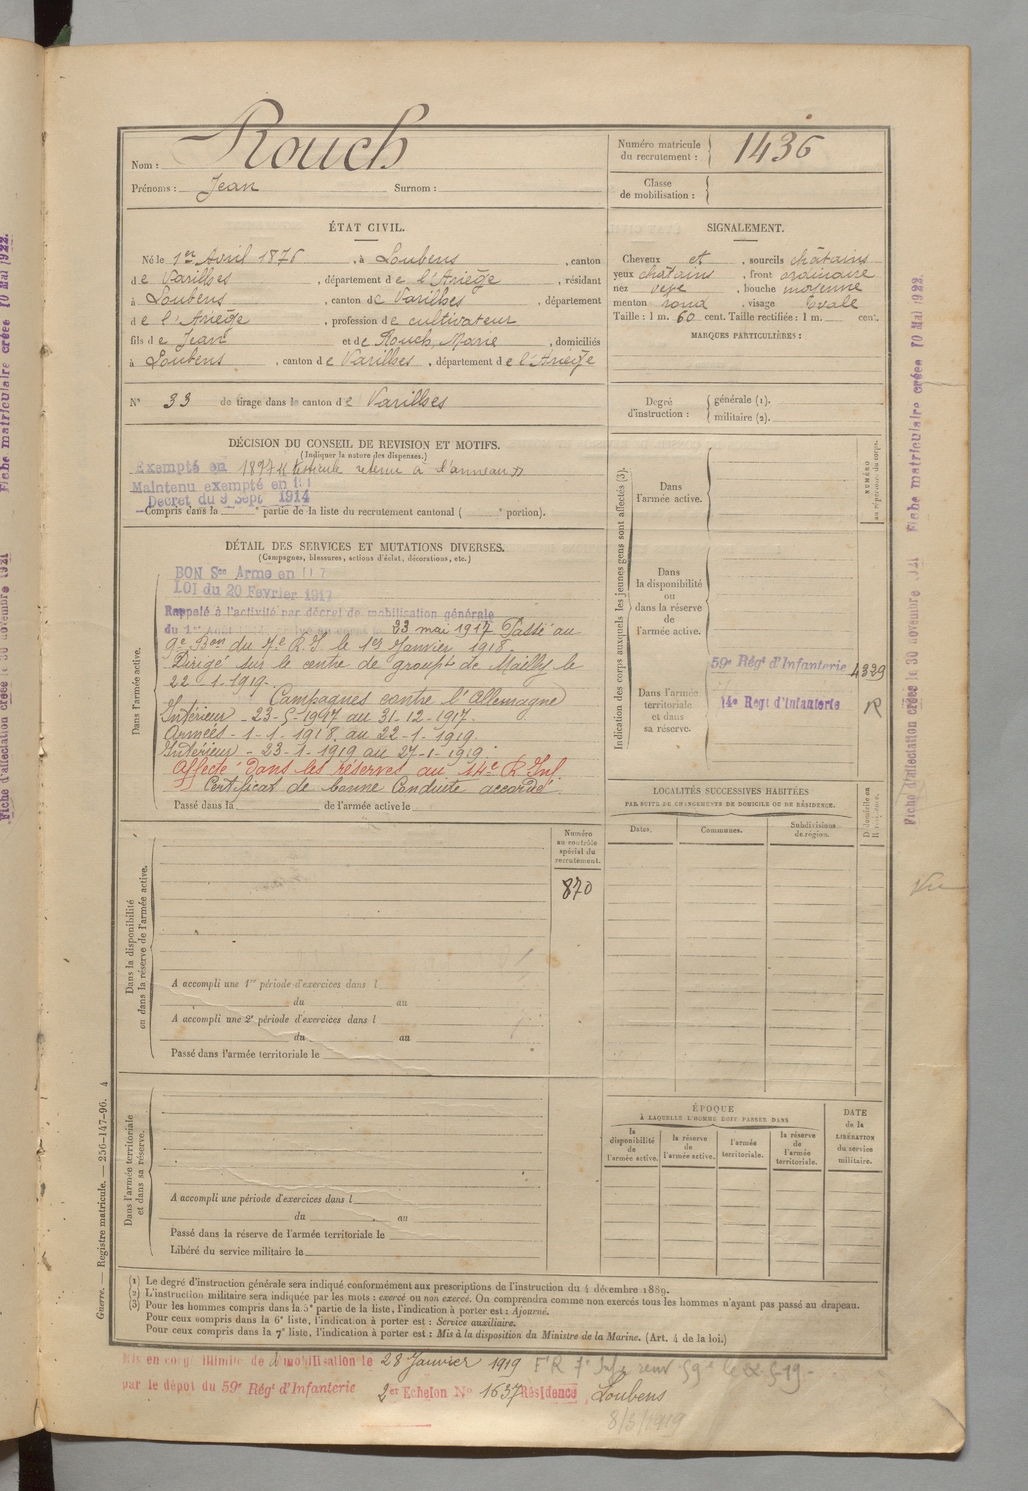 Nom : Rouch
Prénoms : Jean Surnom :
Numéro matricule du recrutement : 1436
Classe de mobilisation :
ÉTAT CIVIL.
Né le 1er Avril 1876, à Loubens, canton
de Varilhes, département de l'Ariège, résidant
à Loubens, canton de Varilhes, département
de l'Ariège, profession de cultivateur
fils de Jean et de Rouch, Marie, domiciliés
à Loubens, canton de Varilhes, département de l'Ariège
N° 33 de tirage dans le canton de Varilhes
SIGNALEMENT.
Cheveux et, sourcils châtains
yeux châtains, front ordinaire
nez, bouche moyenne
menton rond, visage Ovale
Taille : 1 m. 60 cent. Taille rectifiée : 1 m. cent.
MARQUES PARTICULIÈRES :
Degré d'instruction : générale (1).
militaire (2).
DÉCISION DU CONSEIL DE REVISION ET MOTIFS.
(Indiquer la nature des dispenses.)
Exempté en 1897 testicule retenu à l'anneau
Maintenu exempté en
Decret du 9 Sept 1914
Compris dans la e partie de la liste du recrutement cantonal ( e portion).
DÉTAIL DES SERVICES ET MUTATIONS DIVERSES.
(Campagnes, blessures, actions d'éclat, décorations, etc.)
Dans l'armée active.
BON Sce Armé en
LOI du 20 Fevrier 1917
Rappelé à l'activité par décret de mobilisation générale
du 1er 23 mai 1917 Passé au
9e Bon du 7e R.I. le 1er Janvier 1918.
Dirigé sur le centre de groupt de Mailly le
22-1-1919.
Campagnes contre l'Allemagne
Intérieur - 23-5-1917 au 31-12-1917.
Armées - 1-1-1918 au 22-1-1919.
Intérieur - 23-1-1919 au 27-1-1919.
Affecté dans les réserves au 14e R Inf
Certificat de bonne Conduite accordé.
Passé dans la de l'armée active le
Indication des corps auxquels les jeunes gens sont affectés (3).
NUMÉRO au répertoire du corps.
Dans l'armée active.
Dans la disponibilité ou dans la réserve de l'armée active.
Dans l'armée territoriale et dans sa réserve.
59e Régt d'Infanterie 4329
14e Regt d'Infanterie R
LOCALITÉS SUCCESSIVES HABITÉES
PAR SUITE DE CHANGEMENTS DE DOMICILE OU DE RÉSIDENCE.
Dates. Communes. Subdivisions de région. D. domicile ou R. résidence.
Numéro au contrôle spécial du recrutement.
870
Dans la disponibilité ou dans la réserve de l'armée active.
A accompli une 1re période d'exercices dans l
du au
A accompli une 2e période d'exercices dans l
du au
Passé dans l'armée territoriale le
Dans l'armée territoriale et dans sa réserve.
A accompli une période d'exercices dans l
du au
Passé dans la réserve de l'armée territoriale le
Libéré du service militaire le
ÉPOQUE
À LAQUELLE L'HOMME DOIT PASSER DANS
la disponibilité de l'armée active.
la réserve de l'armée active.
l'armée territoriale.
la réserve de l'armée territoriale.
DATE de la LIBÉRATION du service militaire.
(1) Le degré d'instruction générale sera indiqué conformément aux prescriptions de l'instruction du 4 décembre 1889.
(2) L'instruction militaire sera indiquée par les mots : exercé ou non exercé. On comprendra comme non exercés tous les hommes n'ayant pas passé au drapeau.
(3) Pour les hommes compris dans la 5e partie de la liste, l'indication à porter est : Ajourné.
Pour ceux compris dans la 6e liste, l'indication à porter est : Service auxiliaire.
Pour ceux compris dans la 7e liste, l'indication à porter est : Mis à la disposition du Ministre de la Marine. (Art. 4 de la loi.)
Mis en congé illimité de démobilisation le 28 Janvier 1919
par le dépôt du 59e Régt d'Infanterie 2er Echelon No 1637 Résidence Loubens
8/3/1919
Guerre. — Registre matricule. — 256-147-96. 4
Fiche d'affectation créée le 30 novembre 1921
Fiche matriculaire créée 10 Mai 1922.
Fiche d'affectation créée le 30 novembre 1921
Fiche matriculaire créée 10 Mai 1922.
Vu